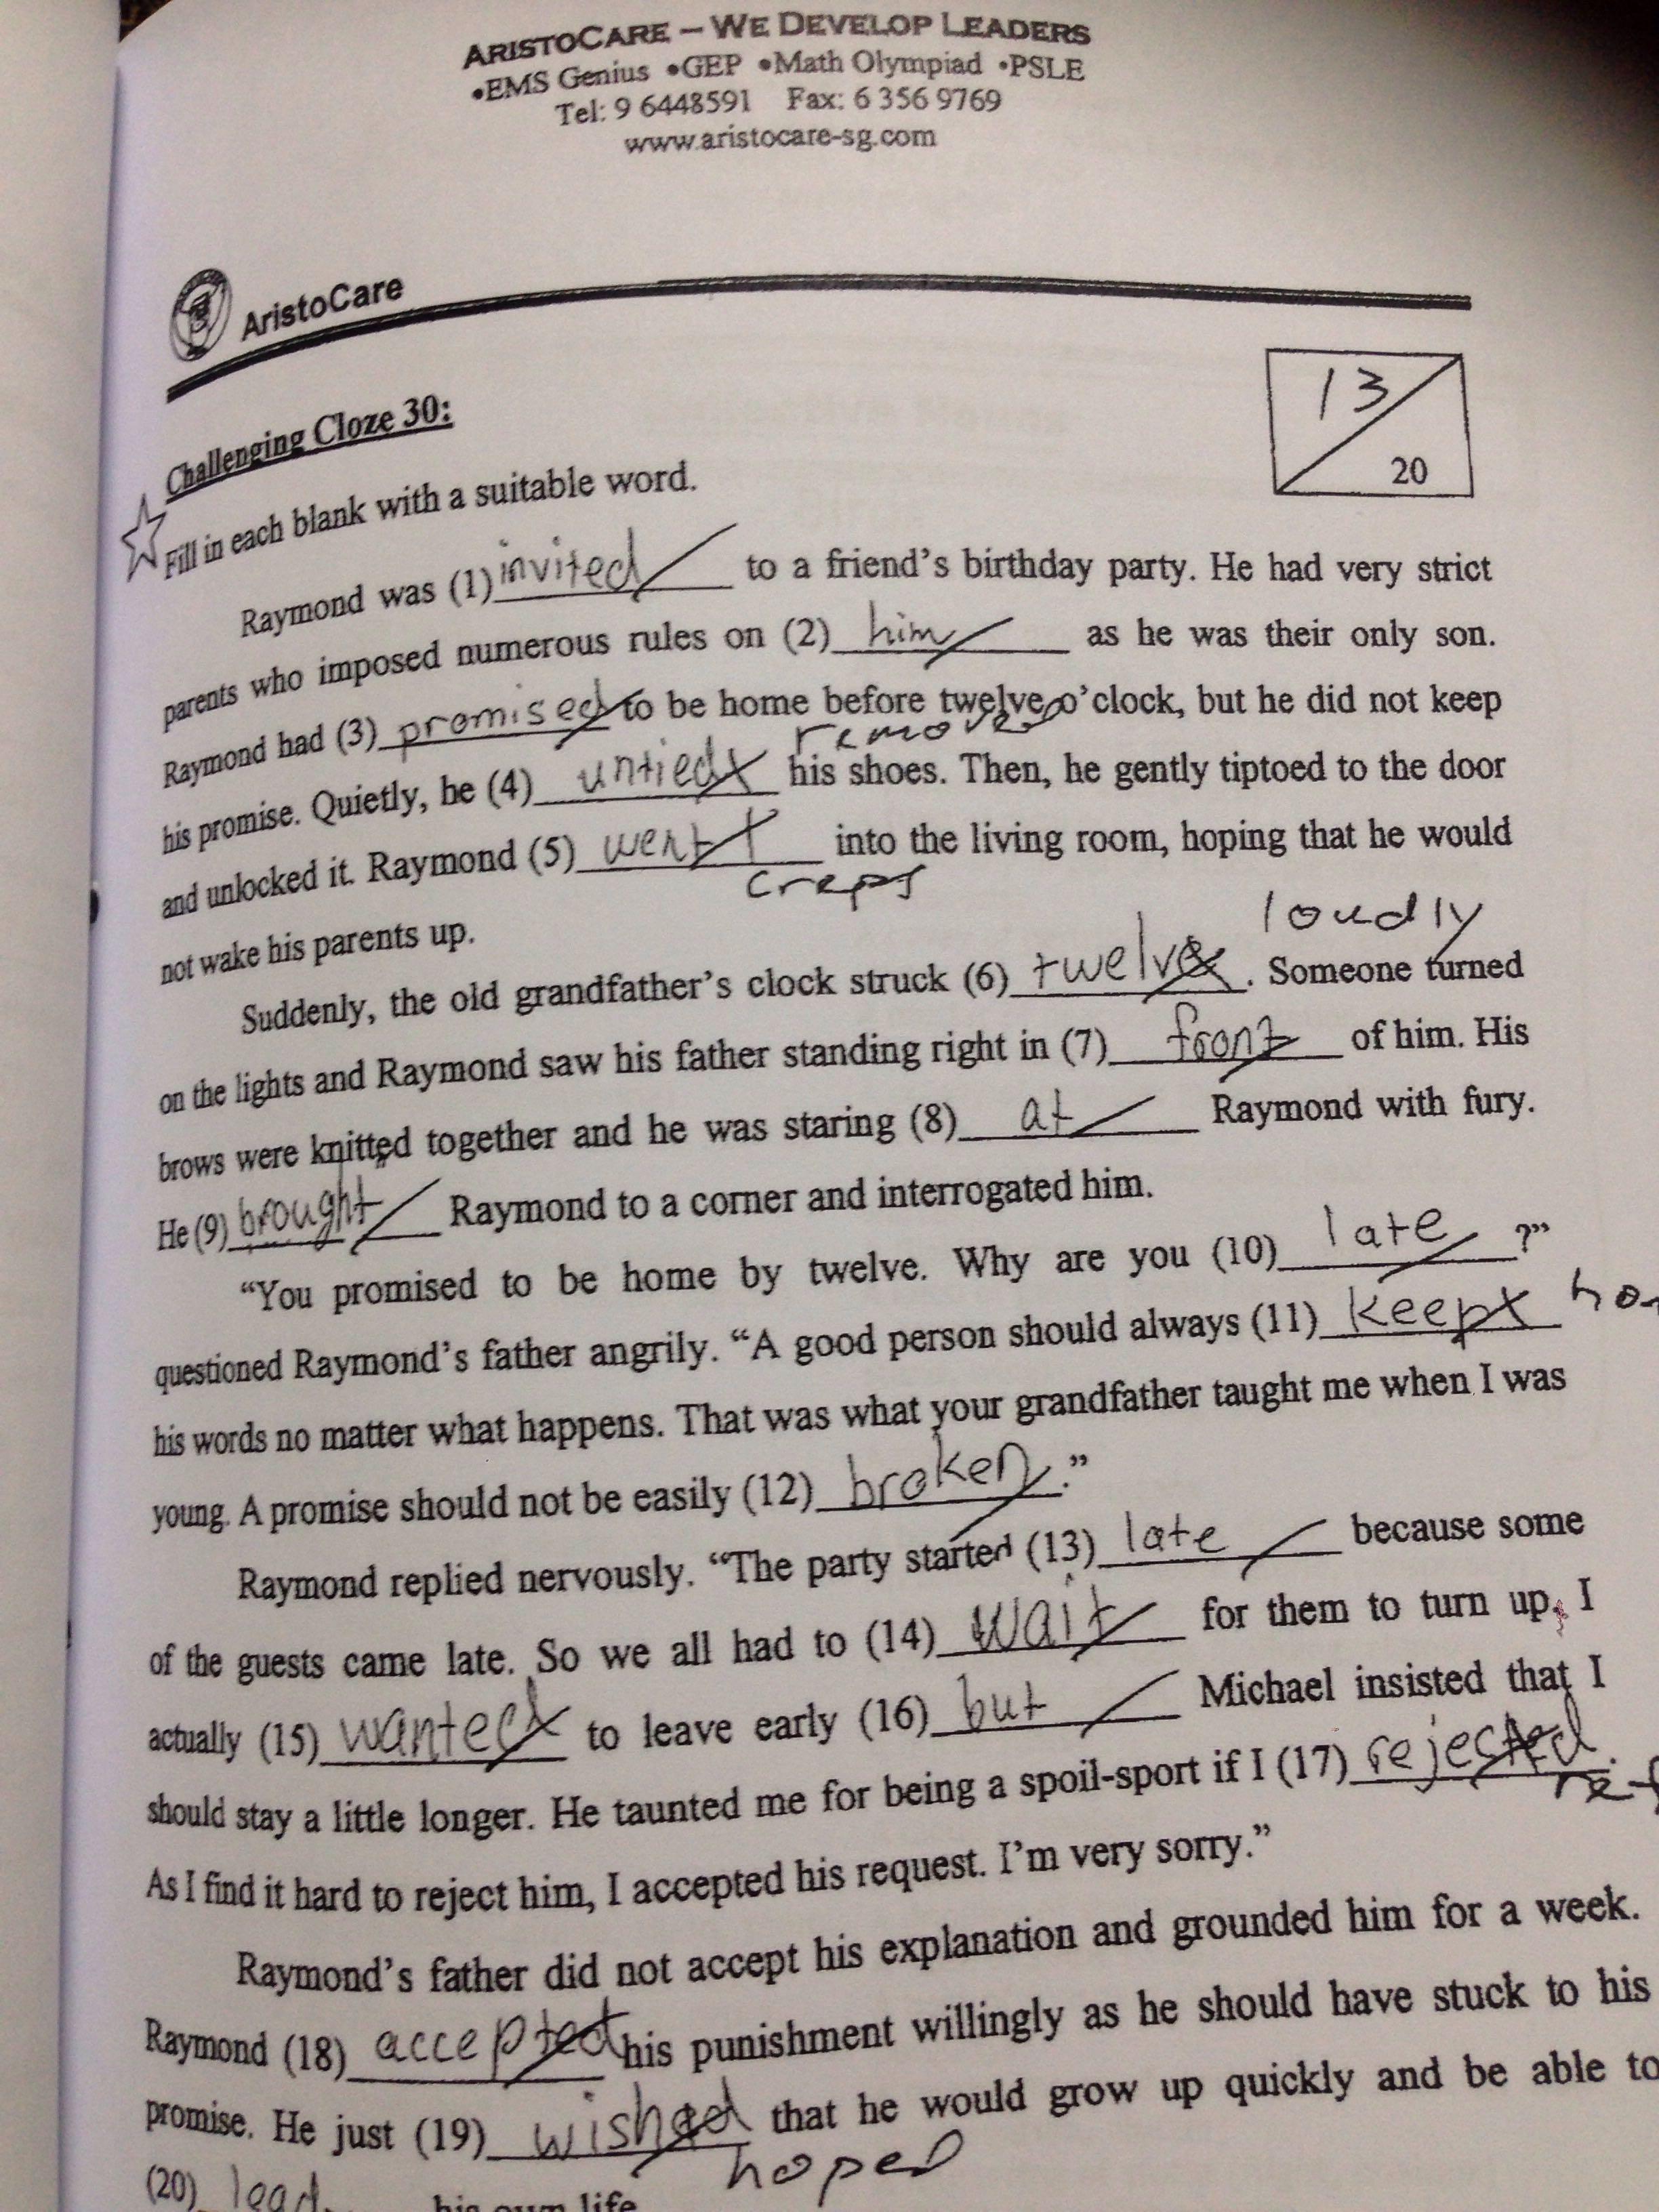 ARISTOCARE – WE DEVELOP LEADERS
•EMS Genius •GEP •Math Olympiad •PSLE
Tel: 9 6448591 Fax: 6 356 9769
www.aristocare-sg.com
AristoCare
13
20
Challenging Cloze 30:
Fill in each blank with a suitable word.
Raymond was (1) invited to a friend's birthday party. He had very strict
parents who imposed numerous rules on (2) him as he was their only son.
Raymond had (3) promised to be home before twelve o'clock, but he did not keep
removed
his promise. Quietly, he (4) untied his shoes. Then, he gently tiptoed to the door
and unlocked it. Raymond (5) went into the living room, hoping that he would
not wake his parents up.
loudly
Suddenly, the old grandfather's clock struck (6) twelve. Someone turned
on the lights and Raymond saw his father standing right in (7) front of him. His
brows were knitted together and he was staring (8) at Raymond with fury.
He (9) brought Raymond to a corner and interrogated him.
"You promised to be home by twelve. Why are you (10) late ?"
questioned Raymond's father angrily. "A good person should always (11) keep
his words no matter what happens. That was what your grandfather taught me when I was
young. A promise should not be easily (12) broken."
Raymond replied nervously. "The party started (13) late because some
of the guests came late. So we all had to (14) wait for them to turn up. I
actually (15) wanted to leave early (16) but Michael insisted that I
should stay a little longer. He taunted me for being a spoil-sport if I (17) rejected.
As I find it hard to reject him, I accepted his request. I'm very sorry."
Raymond's father did not accept his explanation and grounded him for a week.
Raymond (18) accepted his punishment willingly as he should have stuck to his
promise. He just (19) wished that he would grow up quickly and be able to
hoped
(20) lead his own life